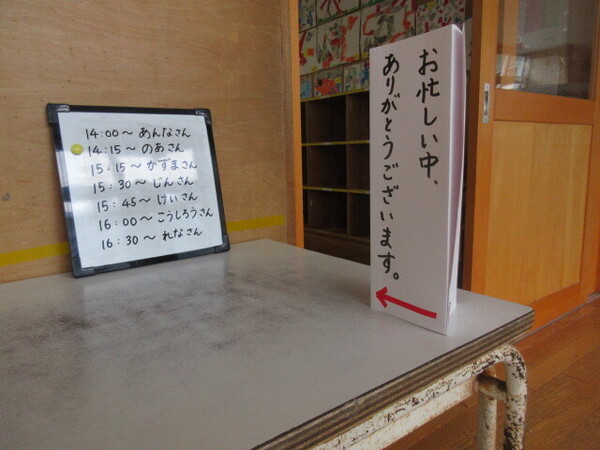 14:00～ あんなさん
14:15～ のあさん
15:15～ かずまさん
15:30～ じんさん
15:45～ けいさん
16:00～ こうしろうさん
16:30～ れなさん
お忙しい中、
ありがとうございます。